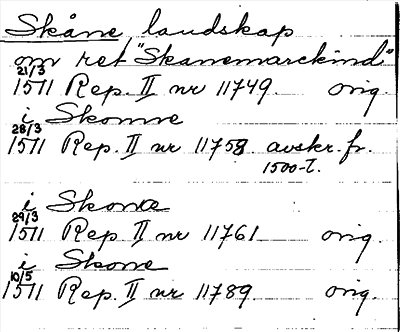 Skåne, landskap
om ret "Skanemarckind"
21/3
1511 Rep. II nr 11749. orig.
i Skonne
28/3
1511 Rep. II nr 11758 avskr. fr.
1500-t.
i Skone
29/3
1511 Rep. II nr 11761 orig.
i Skone
10/5
1511 Rep. II nr 11789. orig.